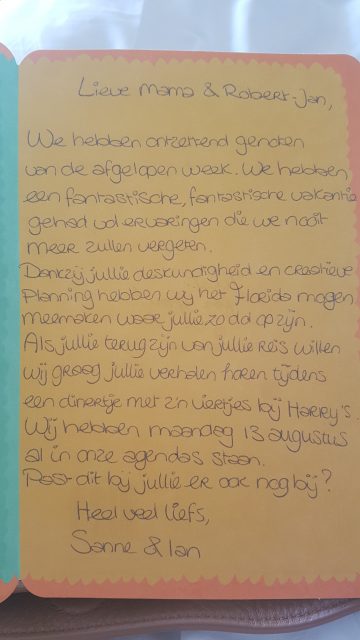 Lieve Mama & Robert-Jan,
We hebben ontzettend genoten
van de afgelopen week. We hebben
een fantastische, fantastische vakantie
gehad vol ervaringen die we nooit
meer zullen vergeten.
Dankzij jullie deskundigheid en creatieve
Planning hebben wij het Florida mogen
meemaken waar jullie zo dol op zijn.
Als jullie terug zijn van jullie reis willen
wij graag jullie verhalen horen tijdens
een dinertje met z'n viertjes bij Harry's.
Wij hebben maandag 13 augustus
al in onze agendas staan.
Past dit bij jullie er ook nog bij?
Heel veel liefs,
Sanne & Ian